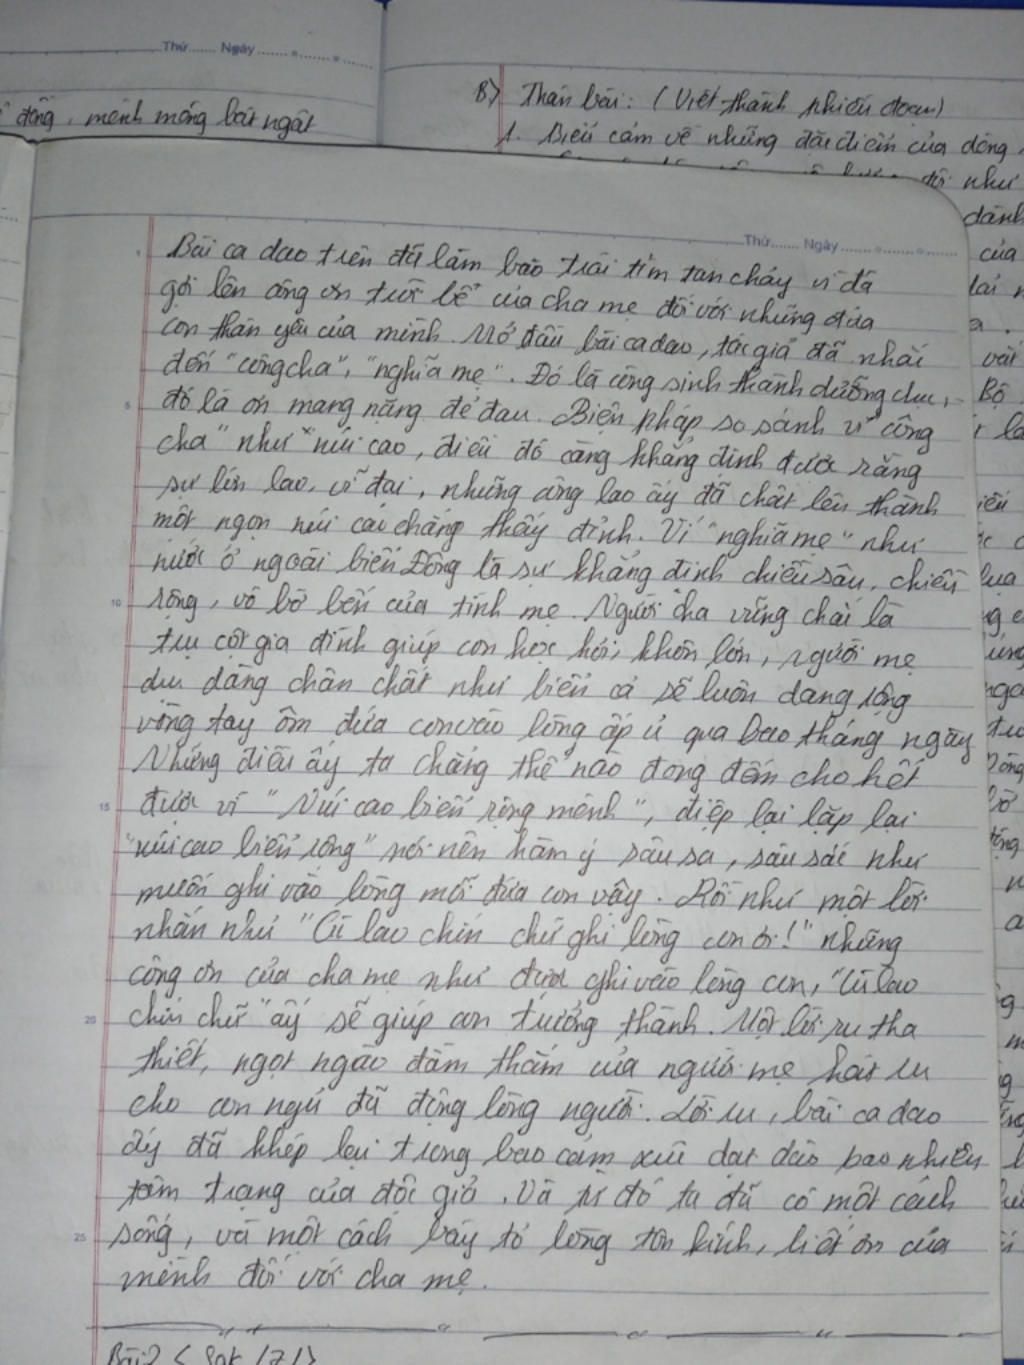 Thứ...... Ngày......
đồng, mênh mông bát ngát
B) Thân bài: (Viết thành nhiều đoạn)
1. Biểu cảm về những đặc điểm của dòng
như
dành
của
Thứ...... Ngày......
Bài ca dao trên đã làm bao trái tim tan chảy vì đã
gợi lên công ơn trời bể của cha mẹ đối với những đứa
con thân yêu của mình. Mở đầu bài ca dao, tác giả đã nhắc
đến "công cha", "nghĩa mẹ". Đó là công sinh thành dưỡng dục,
5 đó là ơn mang nặng đẻ đau. Biện pháp so sánh ví "công
cha" như "núi cao, điều đó càng khẳng định được rằng
sự lớn lao, vĩ đại, những công lao ấy đã chất lên thành
một ngọn núi cao chẳng thấy đỉnh. Ví "nghĩa mẹ" như
nước ở ngoài biển Đông là sự khẳng định chiều sâu, chiều
10 rộng, vô bờ bến của tình mẹ. Người cha vững chãi là
trụ cột gia đình giúp con học hỏi, khôn lớn, người mẹ
dịu dàng chân chất như biển cả sẽ luôn dang rộng
vòng tay ôm đứa con vào lòng ấp ủ qua bao tháng ngày
Những điều ấy ta chẳng thể nào đong đếm cho hết
15 được vì "Núi cao biển rộng mênh", điệp lại lặp lại
"núi cao biển rộng" nói nên hàm ý sâu sa, sâu sắc như
muốn ghi vào lòng mỗi đứa con vậy. Rồi như một lời
nhắn nhủ "Cù lao chín chữ ghi lòng con ơi!" những
công ơn của cha mẹ như được ghi vào lòng con, "Cù lao
20 chín chữ" ấy sẽ giúp con trưởng thành. Một lời ru tha
thiết, ngọt ngào đằm thắm của người mẹ hát ru
cho con ngủ đã động lòng người. Lời ru, bài ca dao
ấy đã khép lại trong bao cảm xúc dạt dào bao nhiêu
tâm trạng của độc giả. Và từ đó ta đã có một cách
25 sống, và một cách bày tỏ lòng tôn kính, biết ơn của
mình đối với cha mẹ.
Bài 2 <Sgk /71>